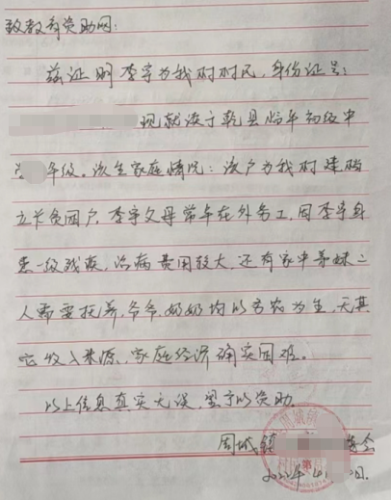 致教育资助网：
兹证明李宇为我村村民，身份证号：
现就读于乾县临平初级中
年级。该生家庭情况：该户为我村建档
立卡贫困户，李宇父母常年在外务工，因李宇身
患一级残疾，治病费用较大，还有家中弟妹二
人需要抚养，爷爷、奶奶均以务农为生，无其
它收入来源，家庭经济确实困难。
以上信息真实无误，望予以资助。
周城镇 委会